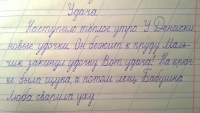 Удача
Наступило тёплое утро. У Дениски
новые удочки. Он бежит к пруду. Маль-
чик закинул удочку. Вот удача! На крюч-
ке была щука, а потом лещ. Бабушка
Люба сварила уху.